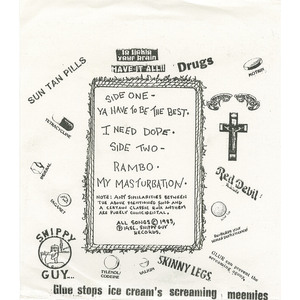 IS YOUR BRAIN
HAVE IT ALL!!
Drugs
SUN TAN PILLS
TETRACYCLINE
SIDE ONE.
YA HAVE TO BE THE BEST.
I NEED DOPE.
SIDE TWO -
RAMBO.
MY MASTURBATION.
NOTE: ANY SIMILARITIES BETWEEN
THE ABOVE MENTIONED SONG AND
A CERTAIN CLASSIC ROCK ANTHEM
ARE PURELY COINCIDENTAL.
ALL SONGS © 1985,
© 1986, SHIPPY GUY
RECORDS.
Red Devil:
SHIPPY
GUY...
TYLENOL/
CODEINE
VALIUM
SKINNY LEGS
Glue stops ice cream's screaming meemies